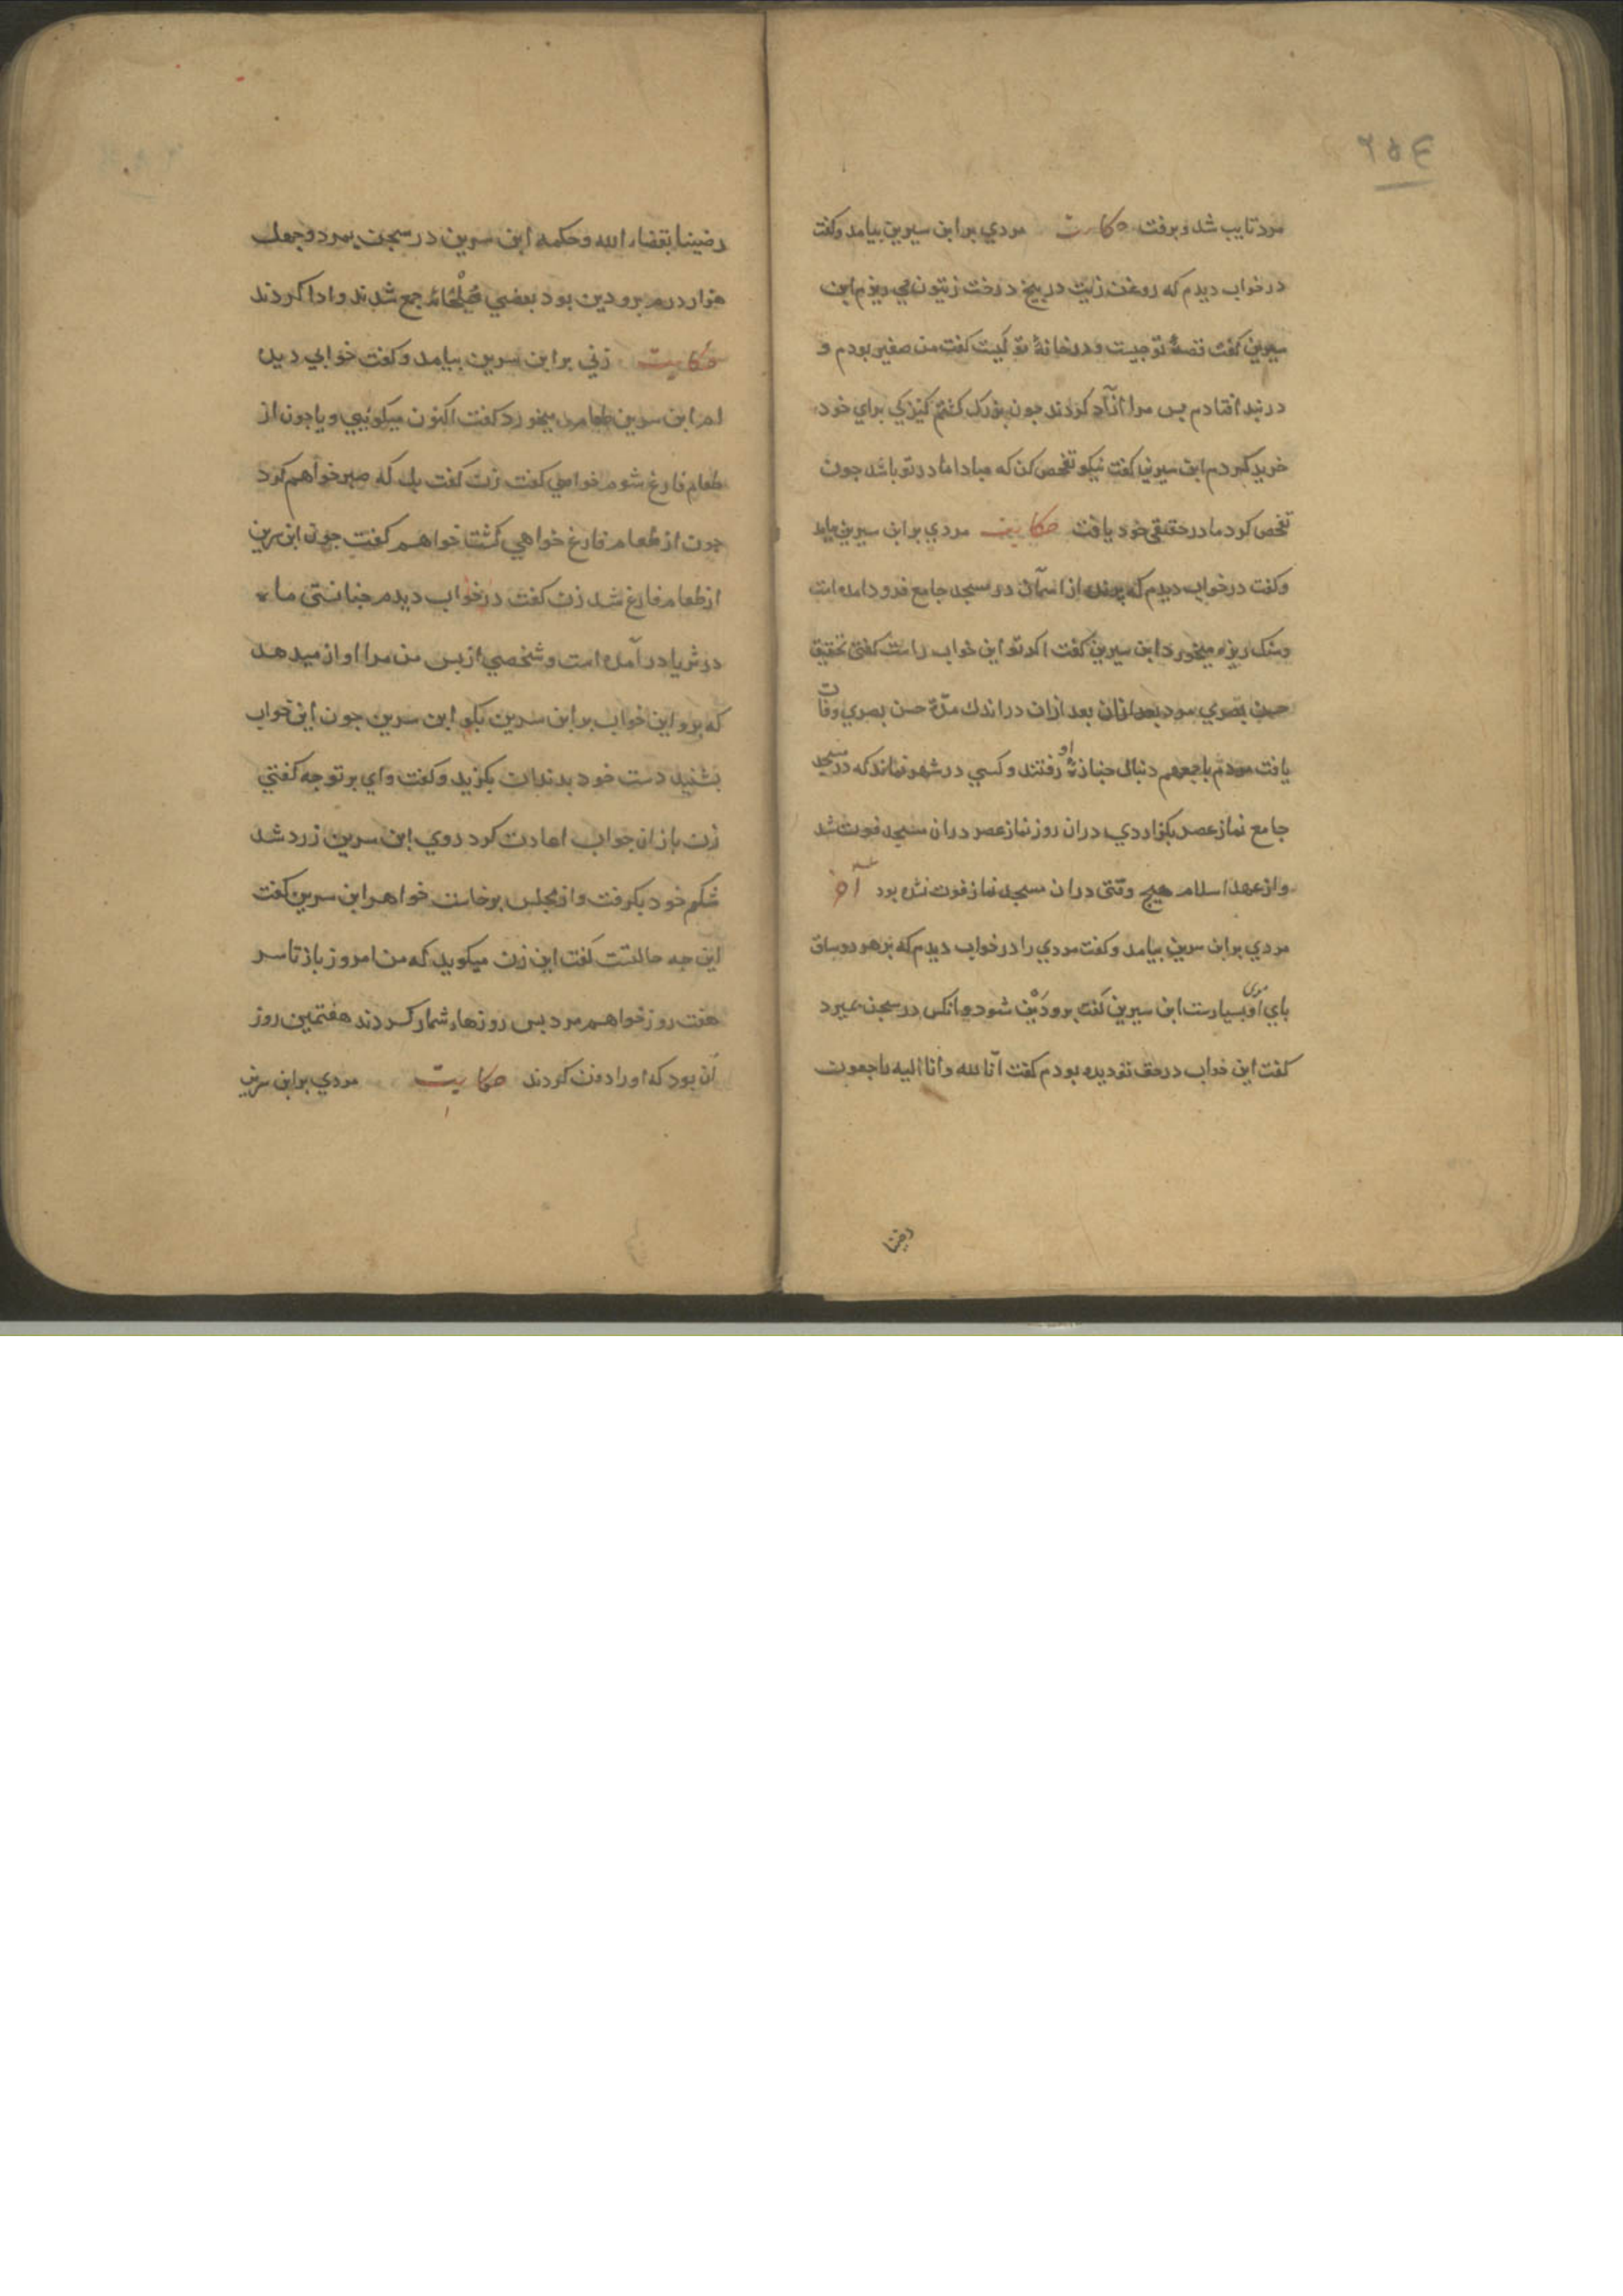 ۲۵٤
مرد تایب شد و برفت حکایت مردي بر ابن سیرین بیامد وکفت
در خواب دیدم که روغن زیت در بیخ درخت زیتون می ریزم ابن
سیرین کفت قصهٔ تو جیست و در خانهٔ تو کیست کفت من صغیر بودم و
در بند افتادم بس مرا آزاد کردند جون بزرک کشتم کنیزکي براي خود
خرید کردم ابن سیرین کفت نیکو تفحص کن که مبادا مادر تو باشد جون
تفحص کرد مادر حقیقي خود یافت حکایت مردي بر ابن سیرین بیامد
وکفت در خواب دیدم که پرنده از اسمان در مسجد جامع فرود امده است
وسنک ریزه میخورد ابن سیرین کفت اکر تو این خواب راست کفتی تحقیق
حسن بصري مرد بعد ازان بعد ازان در اندك مدّة حسن بصري وفات
یافت مردم باجمعهم دنبال جنازهٔ او رفتند وکسي در شهر نماند که در مسجد
جامع نماز عصر بکزاردي دران روز نماز عصر دران مسجد فوت شد
واز عهد اسلام هیج وقتی دران مسجد نماز فوت نشده بود
مردي بر ابن سرین بیامد وکفت مردي را در خواب دیدم که بر هر دو ساق
باي او موی بسیارست ابن سیرین کفت برو دَیْن شود وانکس در سجن بمیرد
کفت این خواب در حق تو دیده بودم کفت انّا لله وانّا الیه راجعون
رضینا
رضینا بقضاء الله وحکمه ابن سرین در سجن بمرد وجهل
هزار درم برو دین بود بعضي صُلْحا جمع شدند وادا کردند
حکایت زني بر ابن سرین بیامد وکفت خوابي دیده
ام ابن سرین طعام میخورد کفت اکنون میکوئي ویا جون از
طعام فارغ شوم خواهي کفت زن کفت بل که صبر خواهم کرد
جون از طعام فارغ خواهي کشت خواهم کفت جون ابن سرین
از طعام فارغ شد زن کفت در خواب دیدم جنانستی ماه
در ثریا در آمده است وشخصي از بس من مرا اواز میدهد
که برو این خواب بر ابن سرین بکو ابن سرین جون این خواب
بشنید دست خود بدندان بکزید وکفت واي بر تو جه کفتي
زن باز ان جواب اعادت کرد روي ابن سرین زرد شد
شکم خود بکرفت واز مجلس برخاست خواهر ابن سرین کفت
این جه حالتست کفت این زن میکوید که من امروز باز تا سر
هفت روز خواهم مرد بس روزها شمار کردند هفتمین روز
آن بود که او را دفن کردند حکایت مردي بر ابن سرین